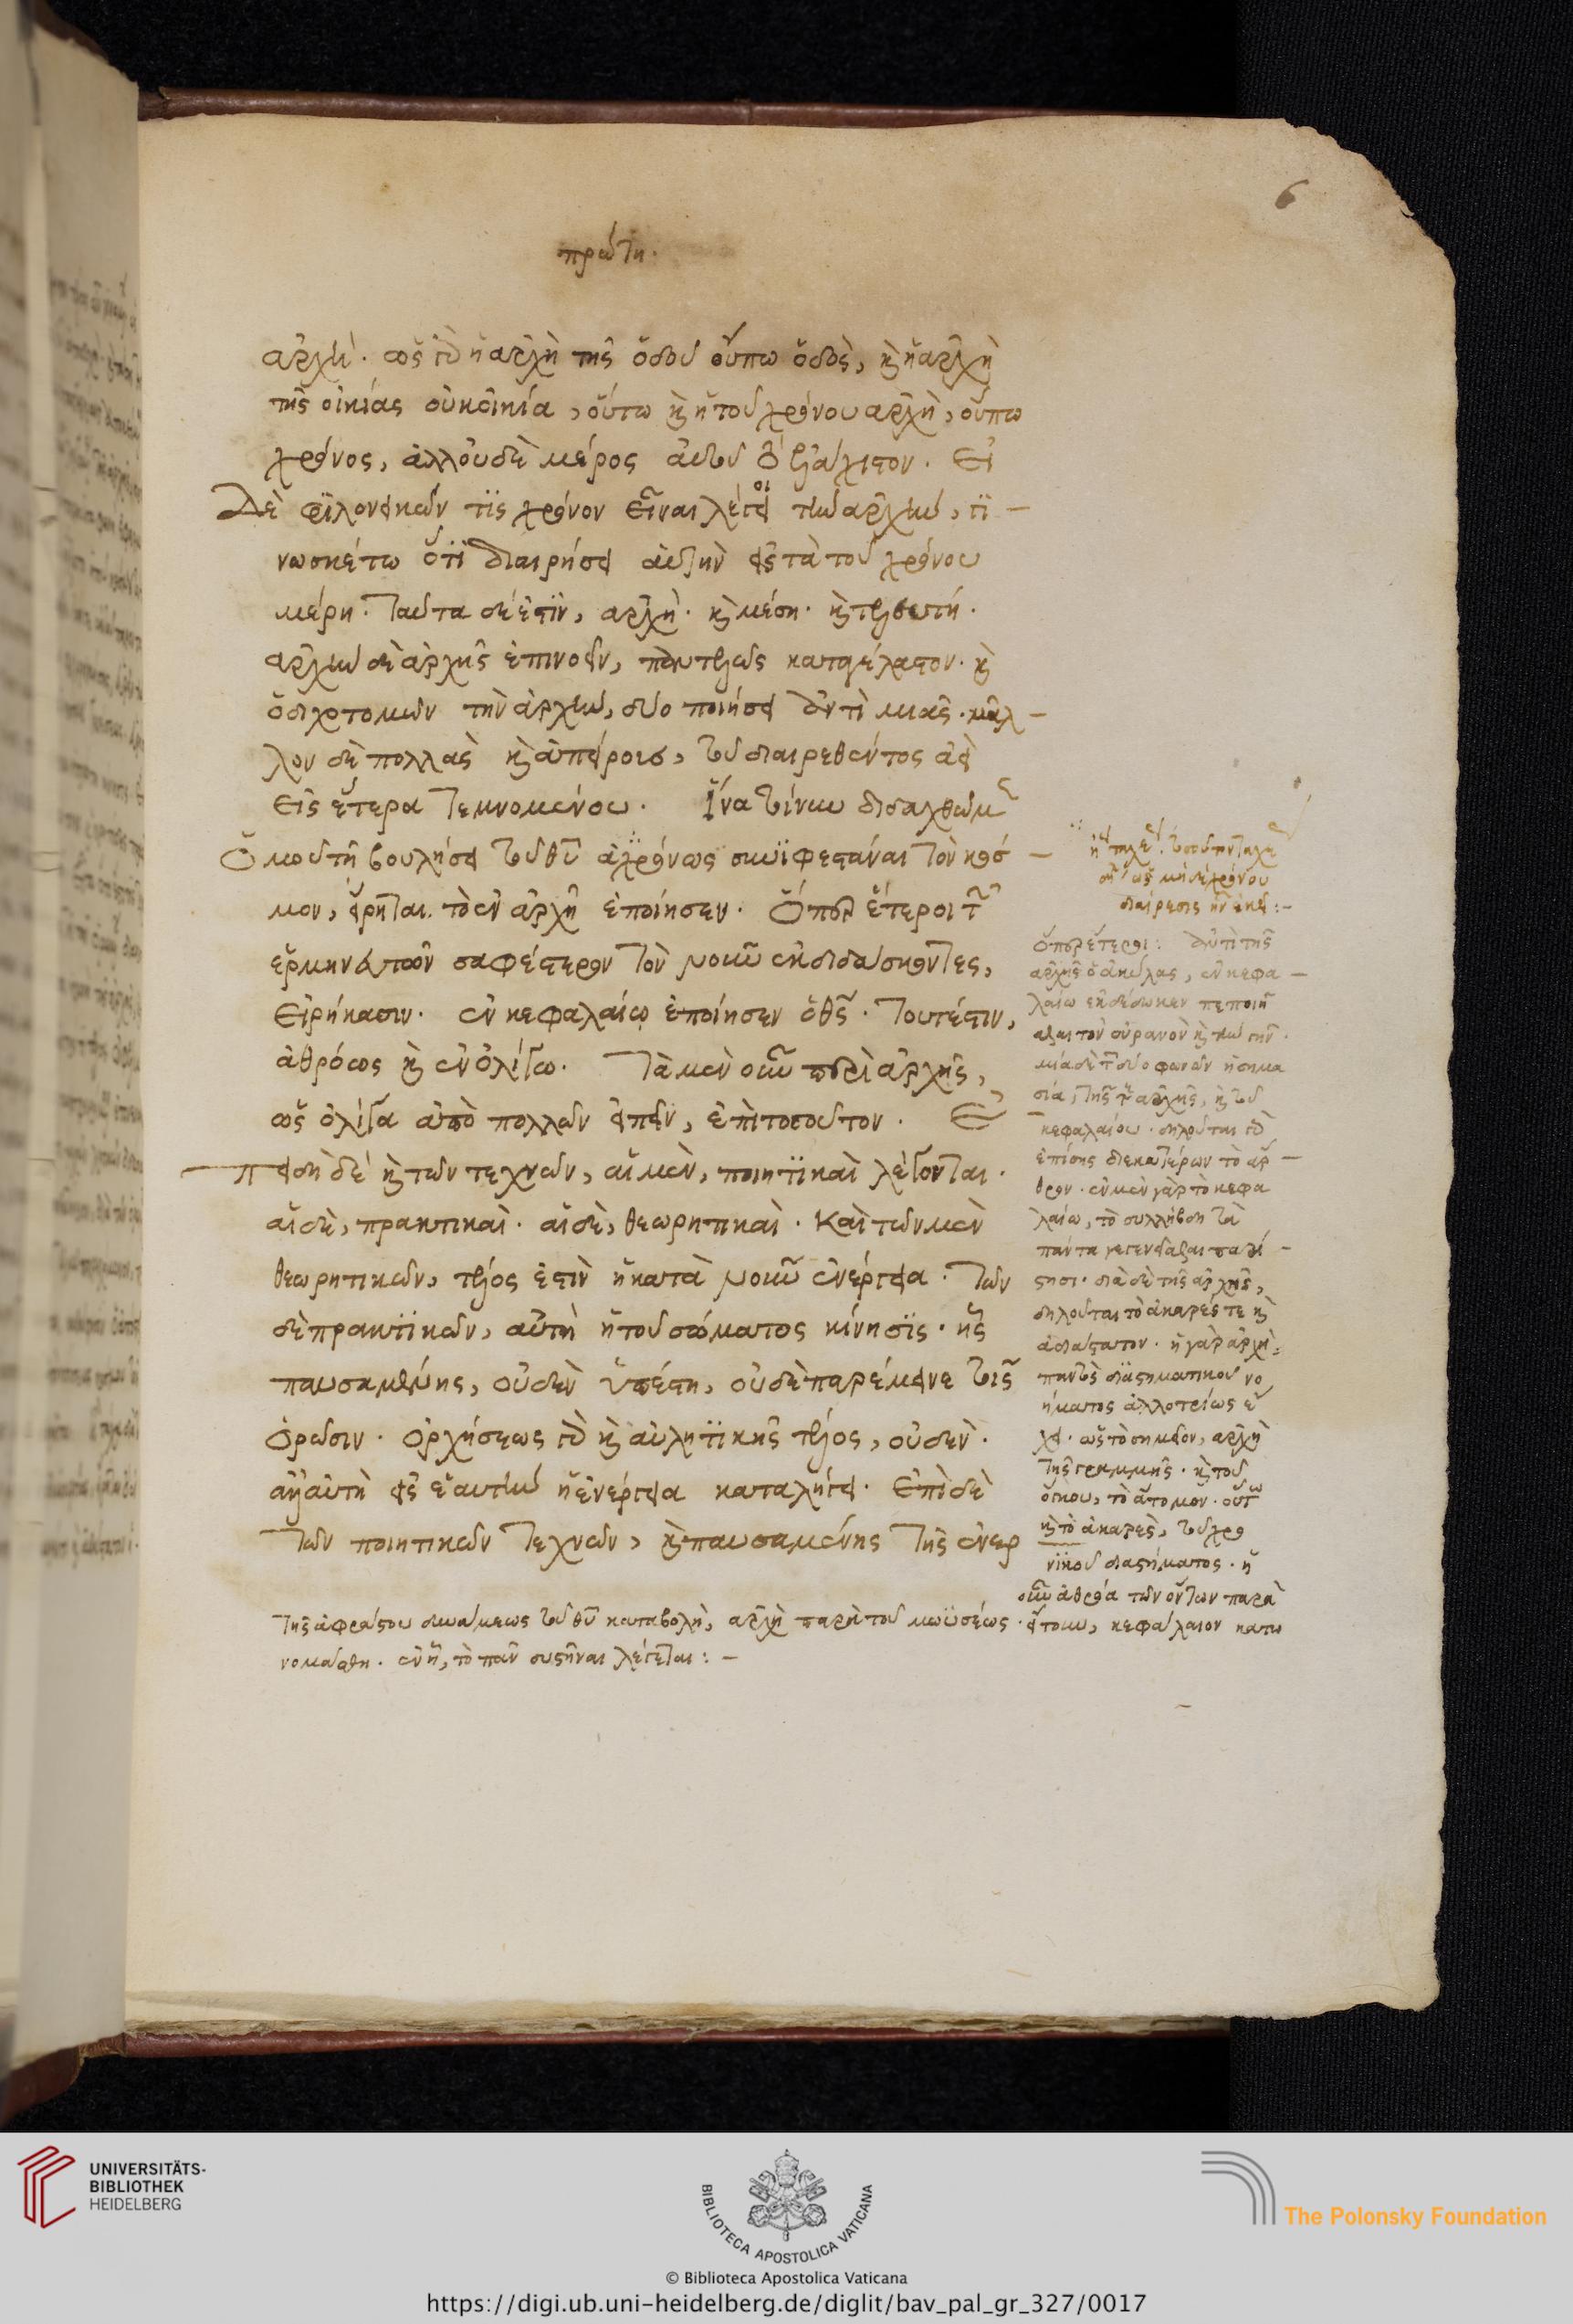 6
πρώτη.
ἀρχή. ὡς γὰρ ἡ ἀρχὴ τῆς ὁδοῦ οὔπω ὁδὸς, καὶ ἡ ἀρχὴ
τῆς οἰκίας οὐκ οἰκία, οὕτω καὶ ἡ τοῦ χρόνου ἀρχὴ, οὔπω
χρόνος, ἀλλ' οὐδὲ μέρος αὐτοῦ τὸ ἐλάχιστον. Εἰ
δὲ φιλονεικῶν τίς χρόνον εἶναι λέγοι τὴν ἀρχὴν, γι-
νωσκέτω ὅτι διαιρήσει αὐτὴν εἰς τὰ τοῦ χρόνου
μέρη. Ταῦτα δέ ἐστιν, ἀρχὴ. καὶ μέση. καὶ τελευτή.
ἀρχὴν δὲ ἀρχῆς ἐπινοεῖν, παντελῶς καταγέλαστον. καὶ
ὁ διχοτομῶν τὴν ἀρχὴν, δύο ποιήσει ἀντὶ μιᾶς. μᾶλ-
λον δὲ πολλὰς καὶ ἀπείρους, τοῦ διαιρεθέντος ἀεὶ
εἰς ἕτερα τεμνομένου. Ἵνα τοίνυν διδαχθῶμεν
ὁμοῦ τῇ βουλήσει τοῦ θυ ἀχρόνως συνυφεστάναι τὸν κόσ-
μον, εἴρηται. τὸ ἐν ἀρχῇ ἐποίησεν. Ὅπερ ἕτεροι τῶν
ἑρμηνευτῶν σαφέστερον τὸν νοῦν ἐκδιδάσκοντες,
εἰρήκασιν. ἐν κεφαλαίῳ ἐποίησεν ὁ θς. Τουτέστιν,
ἀθρόως καὶ ἐν ὀλίγω. Τὰ μὲν οὖν περὶ ἀρχῆς,
ὡς ὀλίγα ἀπὸ πολλῶν εἰπεῖν, ἐπὶ τοσοῦτον. Ἐ
πειδὴ δέ καὶ τῶν τεχνῶν, αἱ μὲν, ποιητικαὶ λέγονται.
αἱ δὲ, πρακτικαὶ. αἱ δὲ, θεωρητικαὶ. Καὶ τῶν μὲν
θεωρητικῶν, τέλος ἐστὶν ἡ κατὰ νοῦν ἐνέργεια. Τῶν
δὲ πρακτικῶν, αὐτὴ ἡ τοῦ σώματος κίνησις. ἧς
παυσαμένης, οὐδὲν ὑπέστη, οὐδὲ παρέμεινε τοῖς
ὁρῶσιν. ὀρχήσεως γὰρ καὶ αὐλητικῆς τέλος, οὐδὲν.
ἀλλ' αὐτὴ εἰς ἑαυτὴν ἡ ἐνέργεια καταλήγει. Ἐπὶ δὲ
τῶν ποιητικῶν τεχνῶν, καὶ παυσαμένης τῆς ἐνερ
διαίρεσις
ὅπερ ἕτεροι: ἀντὶ τῆς
ἀρχῆς ὁ ἀκύλας, ἐν κεφα-
λαίω ἐκδέδωκεν πεποιῆ
σθαι τὸν οὐρανὸν καὶ τὴν γῆν.
μία δὲ τῶν δύο φωνῶν ἡ σημα
σία, τῆς τε ἀρχῆς, καὶ τοῦ
κεφαλαίου. δηλοῦται γὰρ
ἐπίσης δι' ἑκατέρων τὸ ἀθ-
ρόον. ἐν μὲν γὰρ τὸ κεφα
λαίω, τὸ συλλήβδην τὰ
πάντα γεγενῆσθαι παρί-
στησι. διὰ δὲ τῆς ἀρχῆς,
δηλοῦται τὸ ἀκαρές τε καὶ
ἀδιάστατον. ἡ γὰρ ἀρχὴ
παντὸς διαστηματικοῦ νο
ήματος ἀλλοτρίως ἔ
χει. ὡς τὸ σημεῖον, ἀρχὴ
τῆς γραμμῆς. καὶ τοῦ
ὄγκου, τὸ ἄτομον. οὕτω
καὶ τὸ ἀκαρὲς, τοῦ χρο
νικοῦ διαστήματος. ἡ
οὖν ἀθρόα τῶν ὄντων παρὰ
τῆς ἀφράστου δυνάμεως τοῦ θυ καταβολὴ, ἀρχὴ παρὰ τοῦ μωϋσέως. εἴτουν, κεφάλαιον κατω
νομάσθη. ἐν ᾗ, τὸ πᾶν συστῆναι λέγεται:-
UNIVERSITÄTS-
BIBLIOTHEK
HEIDELBERG
BIBLIOTECA APOSTOLICA VATICANA
The Polonsky Foundation
© Biblioteca Apostolica Vaticana
https://digi.ub.uni-heidelberg.de/diglit/bav_pal_gr_327/0017